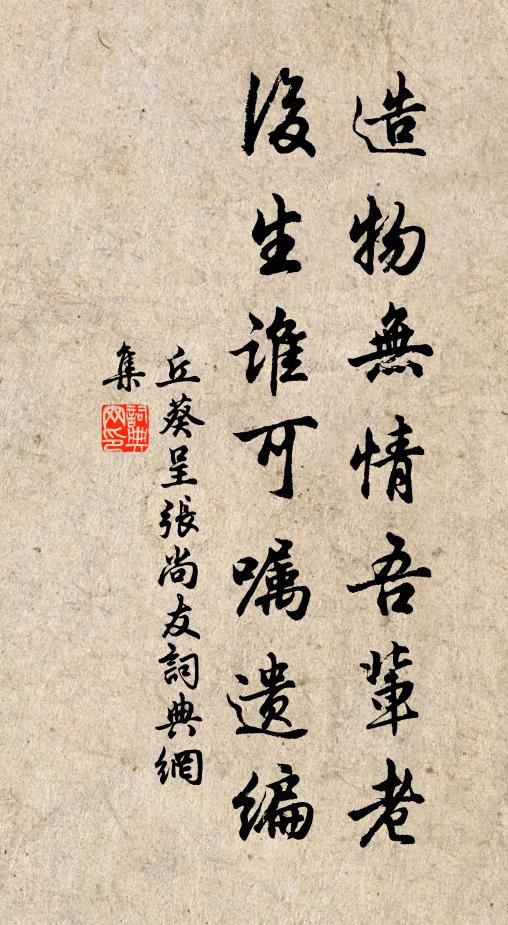 造物無情吾輩老
後生誰可嘱遗编
丘葵呈張尚友詞典網
集
詞典網印